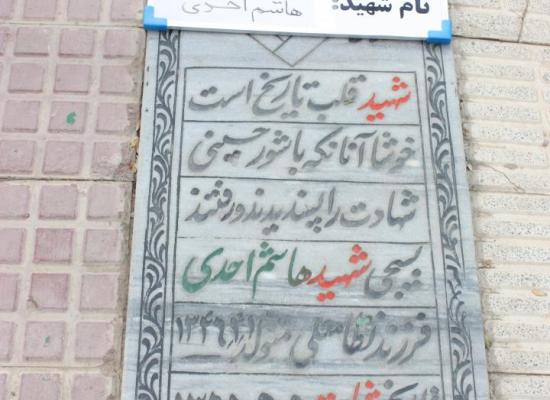 نام شهید: هاشم احدی
شهید قلب تاریخ است
خوشا آنانکه با شور حسینی
شهادت را پسندیدند و رفتند
بسیجی شهید هاشم احدی
فرزند نظامعلی متولد
تاریخ شهادت